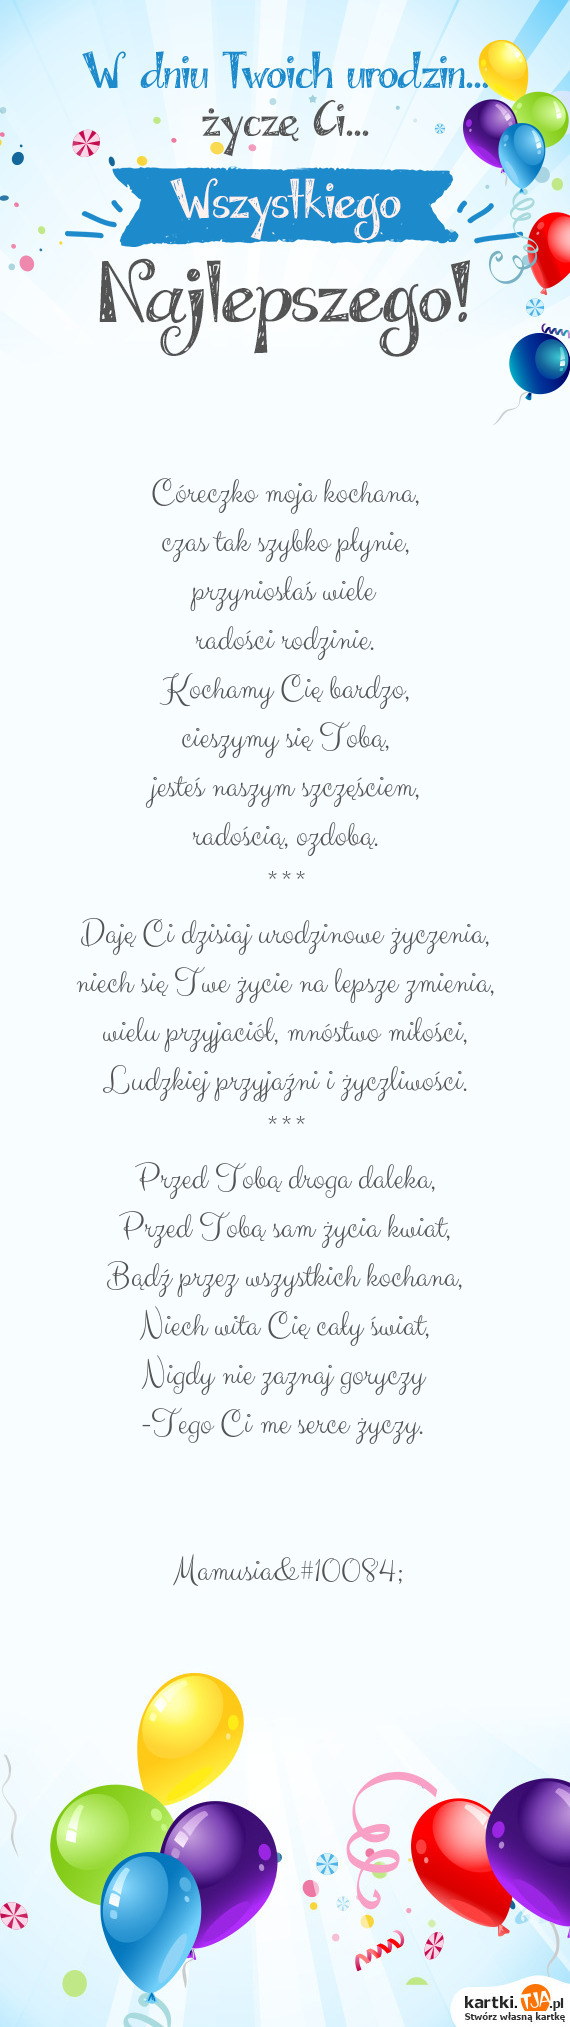 W dniu Twoich urodzin...
życzę Ci...
Wszystkiego
Najlepszego!
Córeczko moja kochana,
czas tak szybko płynie,
przyniosłaś wiele
radości rodzinie.
Kochamy Cię bardzo,
cieszymy się Tobą,
jesteś naszym szczęściem,
radością, ozdobą.
***
Daję Ci dzisiaj urodzinowe życzenia,
niech się Twe życie na lepsze zmienia,
wielu przyjaciół, mnóstwo miłości,
Ludzkiej przyjaźni i życzliwości.
***
Przed Tobą droga daleka,
Przed Tobą sam życia kwiat,
Bądź przez wszystkich kochana,
Niech wita Cię cały świat,
Nigdy nie zaznaj goryczy
-Tego Ci me serce życzy.
Mamusia&#10084;
kartki.TJA.pl
Stwórz własną kartkę